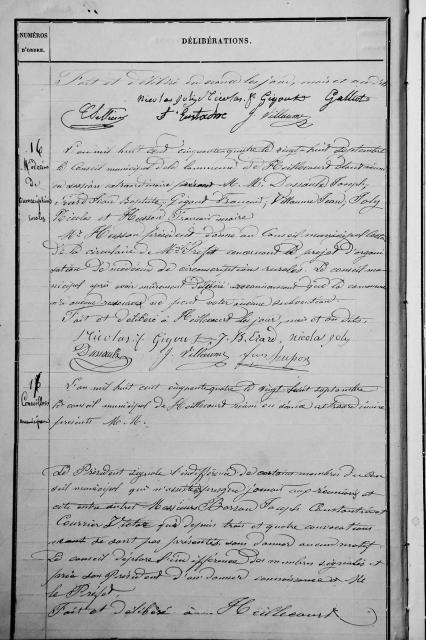 NUMÉROS
D'ORDRE.
DÉLIBÉRATIONS.
Fait et délibéré en séance les jour, mois et an
Nicolas Joly Nicolas. fs Gigout Gallot
St Eustache J. Villaume
16
Médecins
de
circonscriptions
rurales
L'an mil huit cent cinquante quatre le vingt huit septembre
le Conseil municipal de la commune de Heillecourt étant réuni
en session extraordinaire présent M. M. Dassault Joseph,
Gigout François, Villaume Jean, Joly
Nicolas et Husson François maire
Mr Husson président donne au Conseil municipal lecture
de la circulaire de Mr le Préfet concernant le projet d'organi
sation de médecins de circonscriptions rurales. Le conseil mu
nicipal après avoir mûrement délibéré reconnaissant que la commune
n'a aucune ressource ne peut voter aucune subvention.
Fait et délibéré à Heillecourt les jour, mois et an dits.
Nicolas. f Gigout J. B. Evard, nicolas joly
Dassault J. Villaume
17
Conseillers
municipaux
L'an mil huit cent cinquante quatre le vingt huit septembre
le conseil municipal de Heillecourt réuni en séance extraordinaire
présents M. M.
Le Président signale l'indifférence de certains membres du con
seil municipal qui n'assistent presque jamais aux réunions et
cite entre autres Messieurs Joseph
Courrier Victor qui depuis trois et quatre convocations
ne se sont pas présentés sans donner aucun motif.
Le conseil déplore l'indifférence des membres signalés et
prie son Président d'en donner connaissance à Mr
le Préfet.
Fait et délibéré à Heillecourt